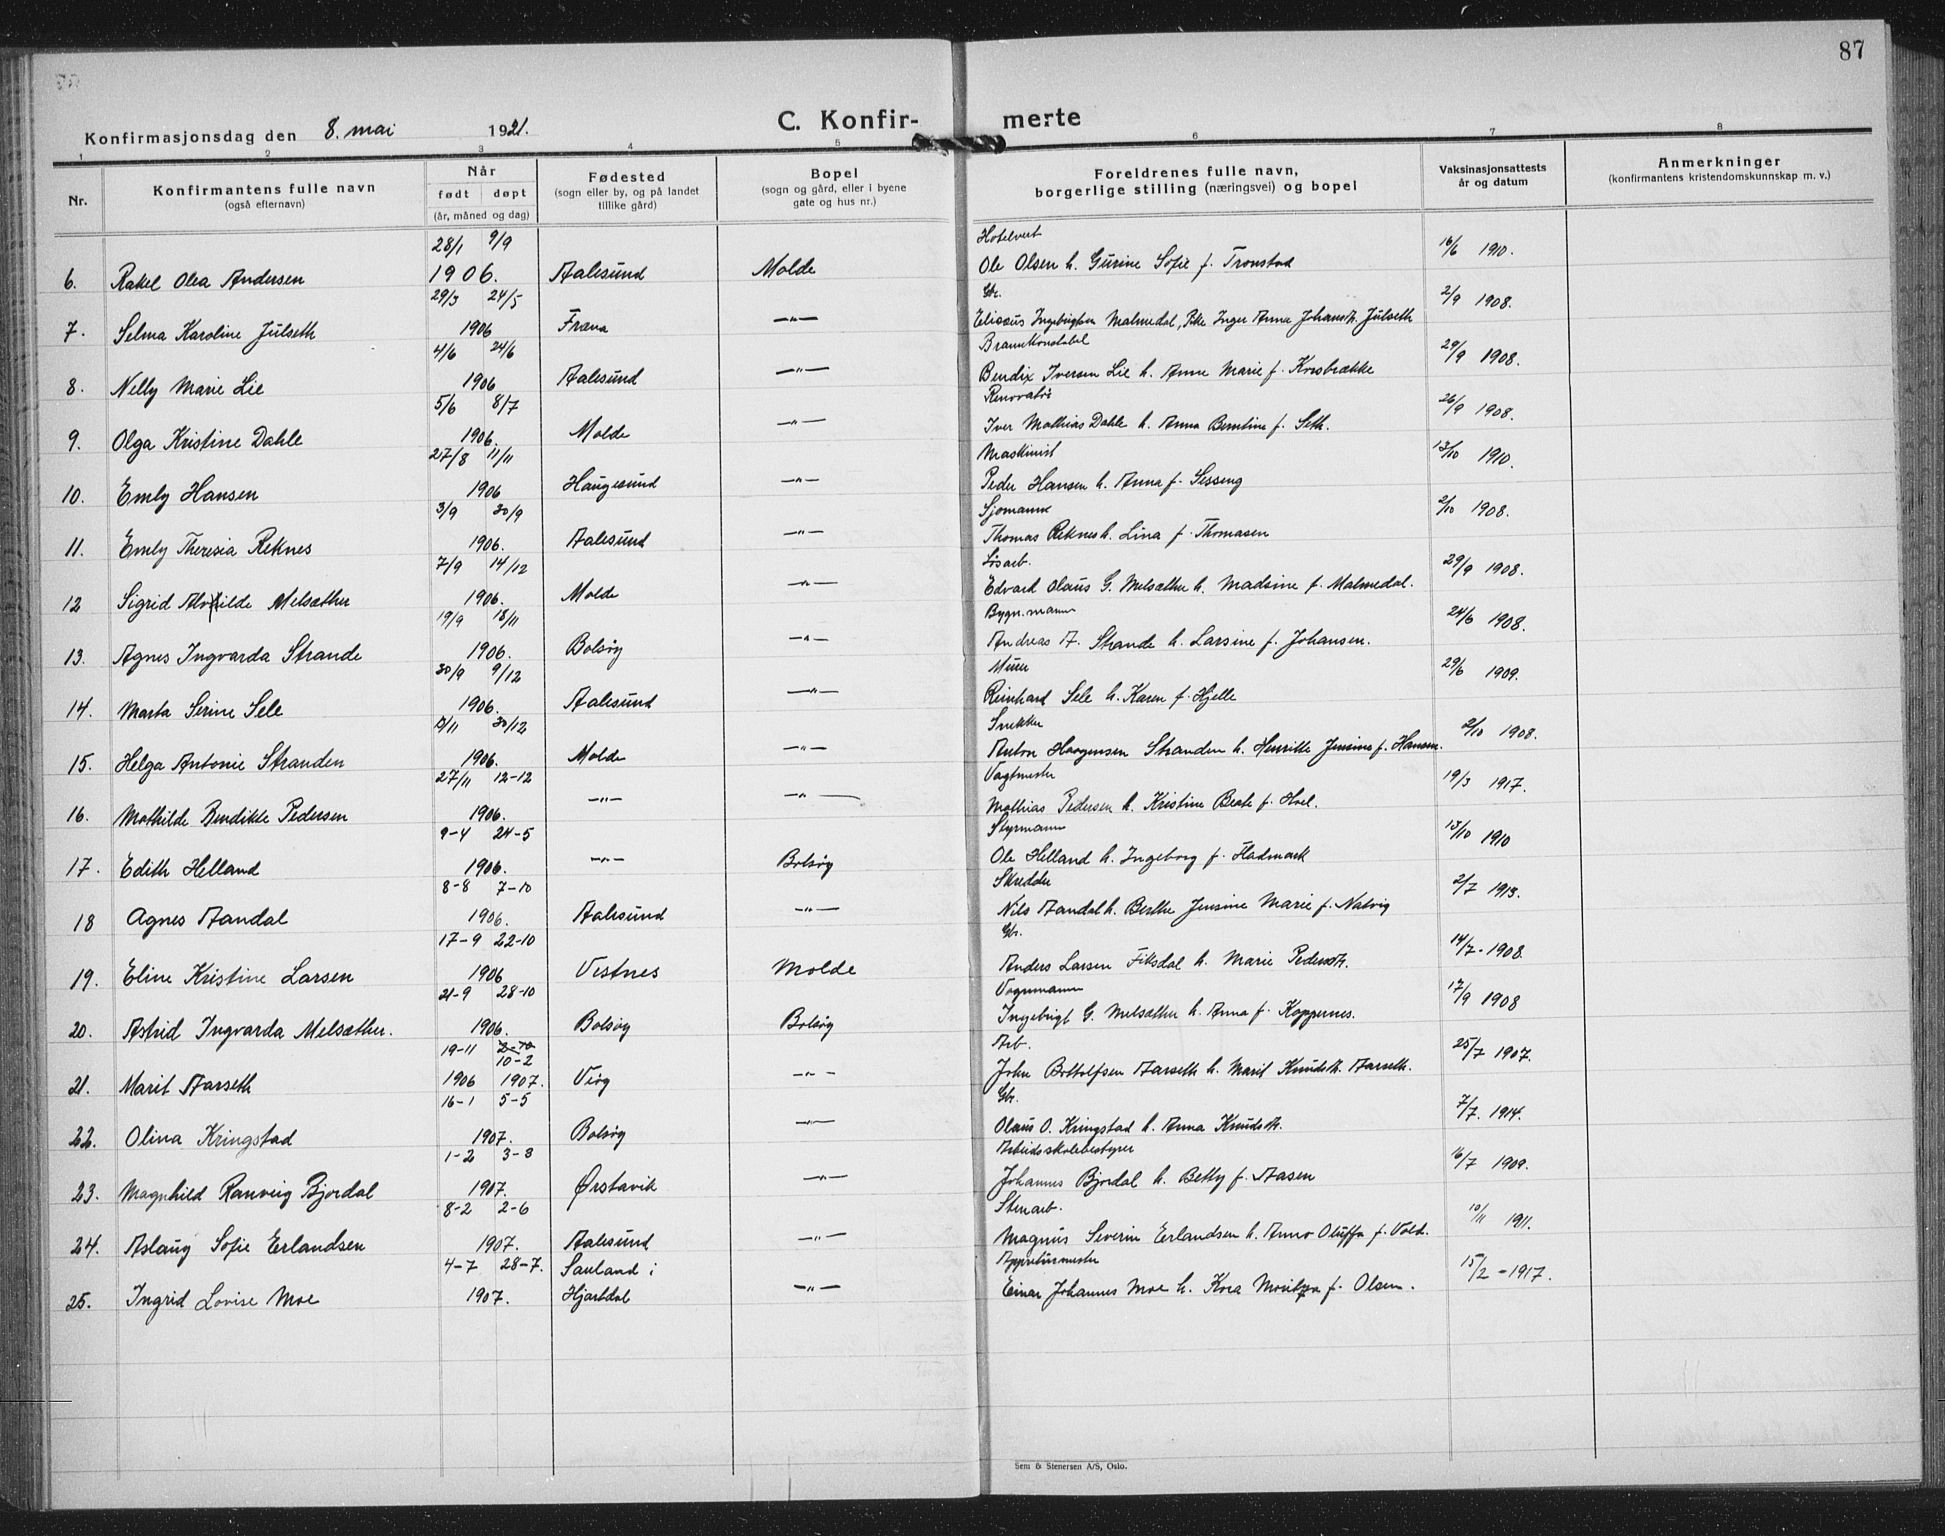 87
Konfirmasjonsdag den 8. mai 1921.
C. Konfir- merte
1 2 3 4 5 6 7 8
Nr.
Konfirmantens fulle navn
(også efternavn)
Når
født døpt
(år, måned og dag)
Fødested
(sogn eller by, og på landet
tillike gård)
Bopel
(sogn og gård, eller i byene
gate og hus nr.)
Foreldrenes fulle navn,
borgerlige stilling (næringsvei) og bopel
Vaksinasjonsattests
år og datum
Anmerkninger
(konfirmantens kristendomskunnskap m. v.)
28/1 9/9 Hotelvert
6. Rakel Olea Andersen 1906. Aalesund Molde Ole Olsen h. Gurine Sofie f. Tronstad 16/6 1910.
29/3 24/5 Gbr.
7. Selma Karoline Julseth 1906 Fræna —"— Eliseus Ingebrigtsen Malmedal, Pike Inger Anna Johansdt. Julseth 2/9 1908.
4/6 24/6 Brannkonstabel
8. Nelly Marie Lie 1906 Aalesund —"— Bendix Iversen Lie h. Anne Marie f. Korsbrække 29/9 1908.
5/6 8/7
9. Olga Kristine Dahle 1906. Molde —"— Iver Mathias Dahle h. Anna Berntine f. Seth. 26/9 1908.
27/8 11/11 Maskinist
10. Emly Hansen 1906 Haugesund —"— Peder Hansen h. Anna f. Sesseng 13/10 1910.
3/9 30/9 Sjømann
11. Emly Theresia Reknes 1906. Aalesund —"— Thomas Reknes h. Lina f. Thomasen 2/10 1908.
7/9 14/12 Løsarb.
12 Sigrid Alvhilde Melsæther 1906. Molde —"— Edvard Olaus G. Melsæther h. Madsine f. Malmedal. 29/9 1908.
19/9 18/11 Bygn.mann
13. Agnes Ingvarda Strande 1906. Bolsøy —"— Andreas A. Strande h. Larsine f. Johansen. 24/6 1908.
30/9 9/12 Murer
14. Marta Serine Sele 1906. Aalesund —"— Reinhard Sele h. Karen f. Hjelle 29/6 1909.
30/12 Snekker
15. Helga Antonie Stranden 1906. Molde —"— Anton Haagensen Stranden h. Henritte Jensine f. Hansen. 2/10 1908.
27/11 12-12 Vagtmester
16. Mathilde Bendikte Pedersen 1906. —"— —"— Mathias Pedersen h. Kristine Beate f. Hoel. 19/3 1917.
9-4 24-5 Styrmann
17. Edith Helland 1906. —"— Bolsøy Ole Helland h. Ingeborg f. Fladmark 13/10 1910
8-8 7-10 Skredder
18 Agnes Aandal 1906. Aalesund —"— Nils Aandal h. Berthe Jensine Marie f. Natvig 2/7 1913.
17-9 22-10 Gbr.
19. Eline Kristine Larsen 1906 Vestnes Molde Anders Larsen Fiksdal h. Marie Pedersdt. 14/7-1908.
21-9 28-10 Vognmann
20. Astrid Ingvarda Melsæther. 1906. Bolsøy Bolsøy Ingebrigt G. Melsæther h. Anna f. Koppernes. 17/9 1908
19-11 2-10 10-2 Arb.
21. Marit Aarseth 1906 1907. Veøy —"— John Bottolfsen Aarseth h. Marit Knudsdt. Aarseth. 25/7 1907.
16-1 5-5 Gbr.
22. Olina Kringstad 1907. Bolsøy —"— Olaus O. Kringstad h. Anna Knudsdt. 7/7. 1914.
1-2 3-3 Arbeidsskolebestyrer
23. Magnhild Ranveig Bjørdal 1907. Ørstavik —"— Johannes Bjørdal h. Betty f. Aasen 16/7 1909.
8-2 2-6 Stenarb.
24. Aslaug Sofie Erlandsen 1907. Aalesund —"— Magnus Severin Erlandsen h. Anna Oluffa f. Vold. 10/11 1911.
4-7 28-7. Sauland i Appreturmester
25. Ingrid Lovise Moe 1907. Hjartdal —"— Einar Johannes Moe h. Kora Moritza f. Olsen. 15/2-1917.
Sem & Stenersen A/S, Oslo.